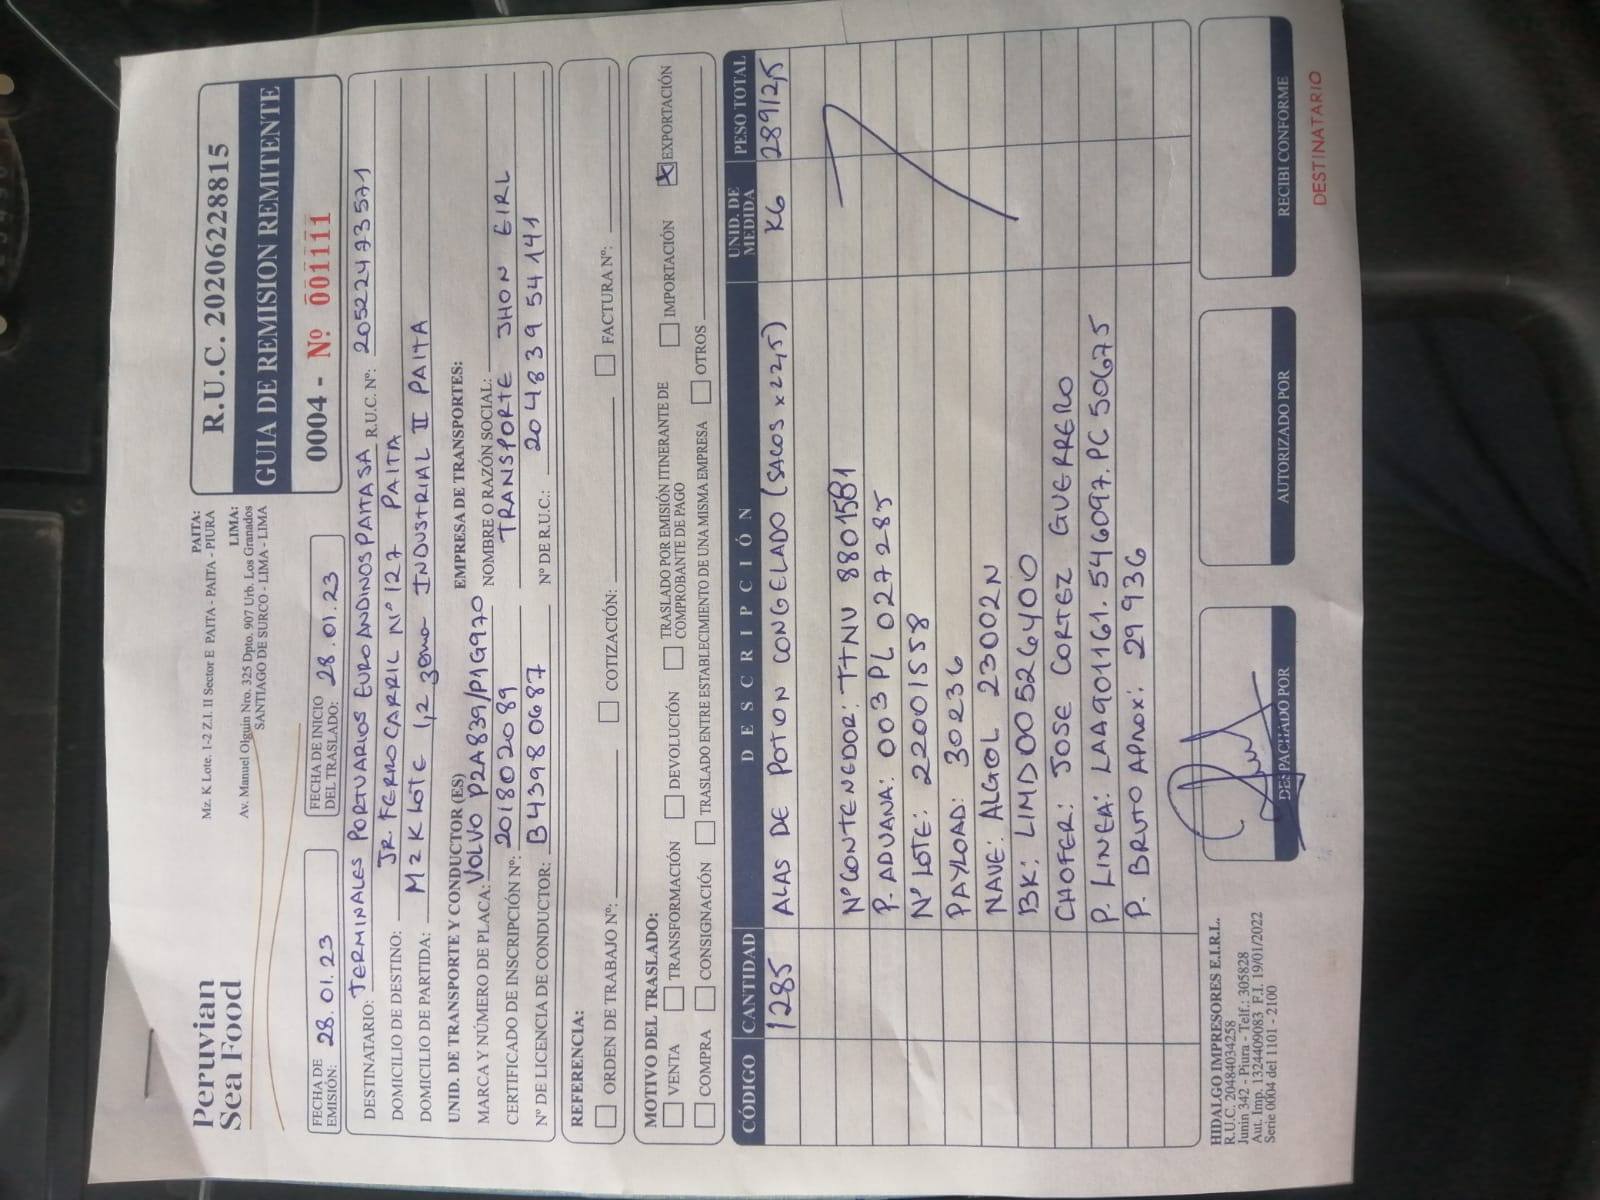 Peruvian
Sea Food
PAITA:
Mz. K Lote. 1-2 Z.I. II Sector E PAITA - PAITA - PIURA
LIMA:
Av. Manuel Olguin Nro. 325 Dpto. 907 Urb. Los Granados
SANTIAGO DE SURCO - LIMA - LIMA
R.U.C. 20206228815
GUIA DE REMISION REMITENTE
0004 - Nº 001111
FECHA DE EMISIÓN: 28.01.23
FECHA DE INICIO DEL TRASLADO: 28.01.23
DESTINATARIO: TERMINALES PORTUARIOS EUROANDINOS PAITA SA R.U.C. Nº: 20522473571
DOMICILIO DE DESTINO: JR. FERROCARRIL Nº 127 PAITA
DOMICILIO DE PARTIDA: MZ K LOTE 1,2 zona INDUSTRIAL II PAITA
UNID. DE TRANSPORTE Y CONDUCTOR (ES) EMPRESA DE TRANSPORTES:
MARCA Y NÚMERO DE PLACA: VOLVO P2A839/P1G970 NOMBRE O RAZÓN SOCIAL:
CERTIFICADO DE INSCRIPCIÓN Nº: 201802089 TRANSPORTE JHON EIRL
Nº DE LICENCIA DE CONDUCTOR: B43980687 Nº DE R.U.C.: 20483954141
REFERENCIA:
ORDEN DE TRABAJO Nº: COTIZACIÓN: FACTURA Nº:
MOTIVO DEL TRASLADO:
VENTA TRANSFORMACIÓN DEVOLUCIÓN TRASLADO POR EMISIÓN ITINERANTE DE COMPROBANTE DE PAGO IMPORTACIÓN X EXPORTACIÓN
COMPRA CONSIGNACIÓN TRASLADO ENTRE ESTABLECIMIENTO DE UNA MISMA EMPRESA OTROS
CÓDIGO CANTIDAD DESCRIPCIÓN UNID. DE MEDIDA PESO TOTAL
1285 ALAS DE POTON CONGELADO (SACOS x 22,5) KG 28912,5
Nº CONTENEDOR: TTNU 8801581
P. ADUANA: 003PL 027285
Nº LOTE: 22001558
PAYLOAD: 30236
NAVE: ALGOL 23002N
BK: LIMD00526400
CHOFER: JOSE CORTEZ GUERRERO
P. LINEA: LAA901161. 546097. PC 50675
P. BRUTO APROX: 29 936
HIDALGO IMPRESORES E.I.R.L.
R.U.C. 20484034258
Junin 342 - Piura - Telf.: 305828
Aut. Imp. 1324409083 F.I. 19/01/2022
Serie 0004 del 1101 - 2100
DESPACHADO POR
AUTORIZADO POR
RECIBI CONFORME
DESTINATARIO